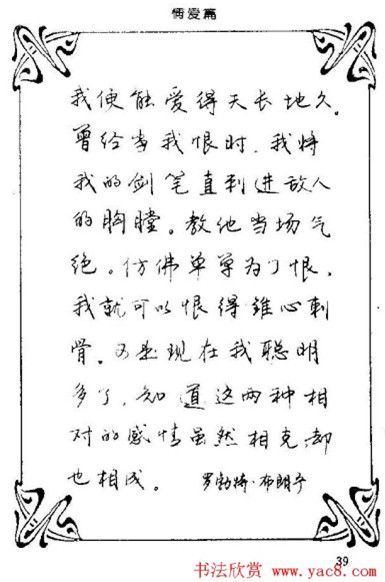 情爱篇
我便能爱得天长地久。
曾经当我恨时，我将
我的剑笔直刺进敌人
的胸膛。教他当场气
绝。仿佛单单为了恨，
我就可以恨得锥心刺
骨。可是现在我聪明
多了，知道这两种相
对的感情虽然相克，却
也相成。 罗勃特·布朗宁
39
书法欣赏
www.yac8.com